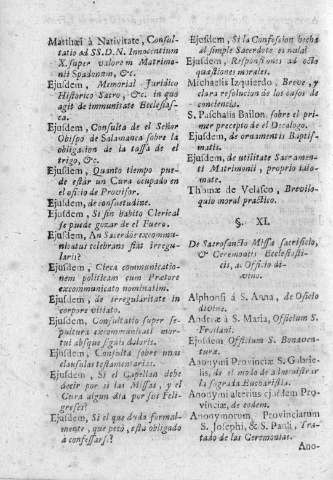 Matthæi à Nativitate, Consul-
tatio ad SS.D.N. Innocentium
X. super valorem Matrimo-
nii Spadonum, &c.
Ejusdem, Memorial Juridico
Historico Sacro, &c. in quo
agit de immunitate Ecclesias-
ca.
Ejusdem, Consulta de el Señor
Obispo de Salamanca sobre la
obligacion de la tassa de el
trigo, &c.
Ejusdem, Quanto tiempo pue-
de estàr un Cura ocupado en
el oficio de Provisor.
Ejusdem, de consuetudine.
Ejusdem, Si sin habito Clerical
se puede gozar de el Fuero.
Ejusdem, An Sacerdos excommu-
nicatus celebrans fiat irregu-
laris?
Ejusdem, Circa communicatio-
nem politicam cum Prætore
excommunicato nominatim.
Ejusdem, de irregularitate in
corpore vitiato.
Ejusdem, Consultatio super se-
pultura excommunicati mor-
tui absque signis doloris.
Ejusdem, Consulta sobre unas
clausulas testamentarias.
Ejusdem, Si el Capellan debe
decir por si las Missas, y el
Cura algun dia por sus Feli-
greses?
Ejusdem, Si el que duda formal-
mente, que pecò, està obligado
à confessars.?
Ejusdem, Si la Confession hecha
al simple Sacerdote es nula?
Ejusdem, Responsiones ad octo
quæstiones morales.
Michaelis Izquierdo, Breve, y
clara resolucion de los casos de
conciencia.
S. Paschalis Bailon, sobre el pri-
mer precepto de el Decalogo.
Ejusdem, de ornamentis Baptis-
matis.
Ejusdem, de utilitate Sacramen-
ti Matrimonii, proprio idio-
mate.
Thomæ de Velasco, Brevilo-
quio moral practico.
§. XI.
De Sacrosancto Missæ sacrificio,
& Ceremoniis Ecclesiasti-
cis, & Officio di-
vino.
Alphonsi à S. Anna, de Oficio
divino.
Andreæ à S. Maria, Officium S.
Froilani.
Ejusdem Officium S. Bonaven-
turæ.
Anonymi Provinciæ S. Gabrie-
lis, de el modo de administrar
la sagrada Eucharistia.
Anonymi alterius ejusdem Pro-
vinciæ, de eodem.
Anonymorum Provinciarum
S. Josephi, & S. Pauli, Tra-
tado de las Ceremonias.
Ano-